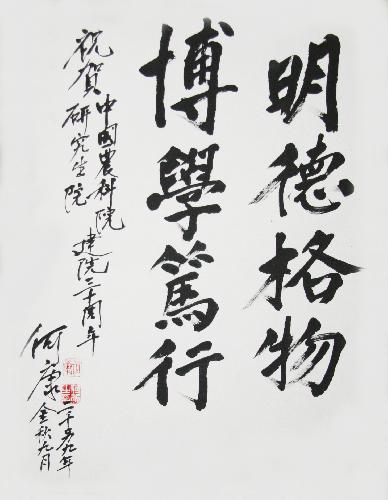 明德格物
博學篤行
祝賀中國農科院
研究生院
建院三十周年
何康
金秋九月